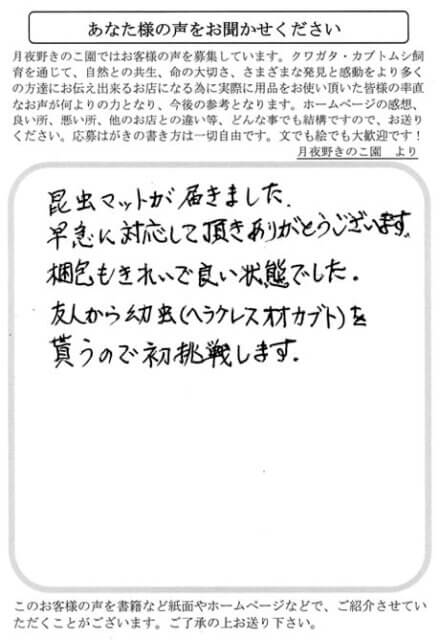 あなた様の声をお聞かせください
月夜野きのこ園ではお客様の声を募集しています。クワガタ・カブトムシ飼
育を通じて、自然との共生、命の大切さ、さまざまな発見と感動をより多く
の方達にお伝え出来るお店になる為に実際に用品をお使い頂いた皆様の率直
なお声が何よりの力となり、今後の参考となります。ホームページの感想、
良い所、悪い所、他のお店との違い等、どんな事でも結構ですので、お送り
ください。応募はがきの書き方は一切自由です。文でも絵でも大歓迎です！
月夜野きのこ園　より
昆虫マットが届きました.
早急に対応して頂きありがとうございます。
梱包もきれいで良い状態でした。
友人から幼虫(ヘラクレスオオカブト)を
貰うので初挑戦します。
このお客様の声を書籍など紙面やホームページなどで、ご紹介させてい
ただくことがございます。ご了承の上お送り下さい。